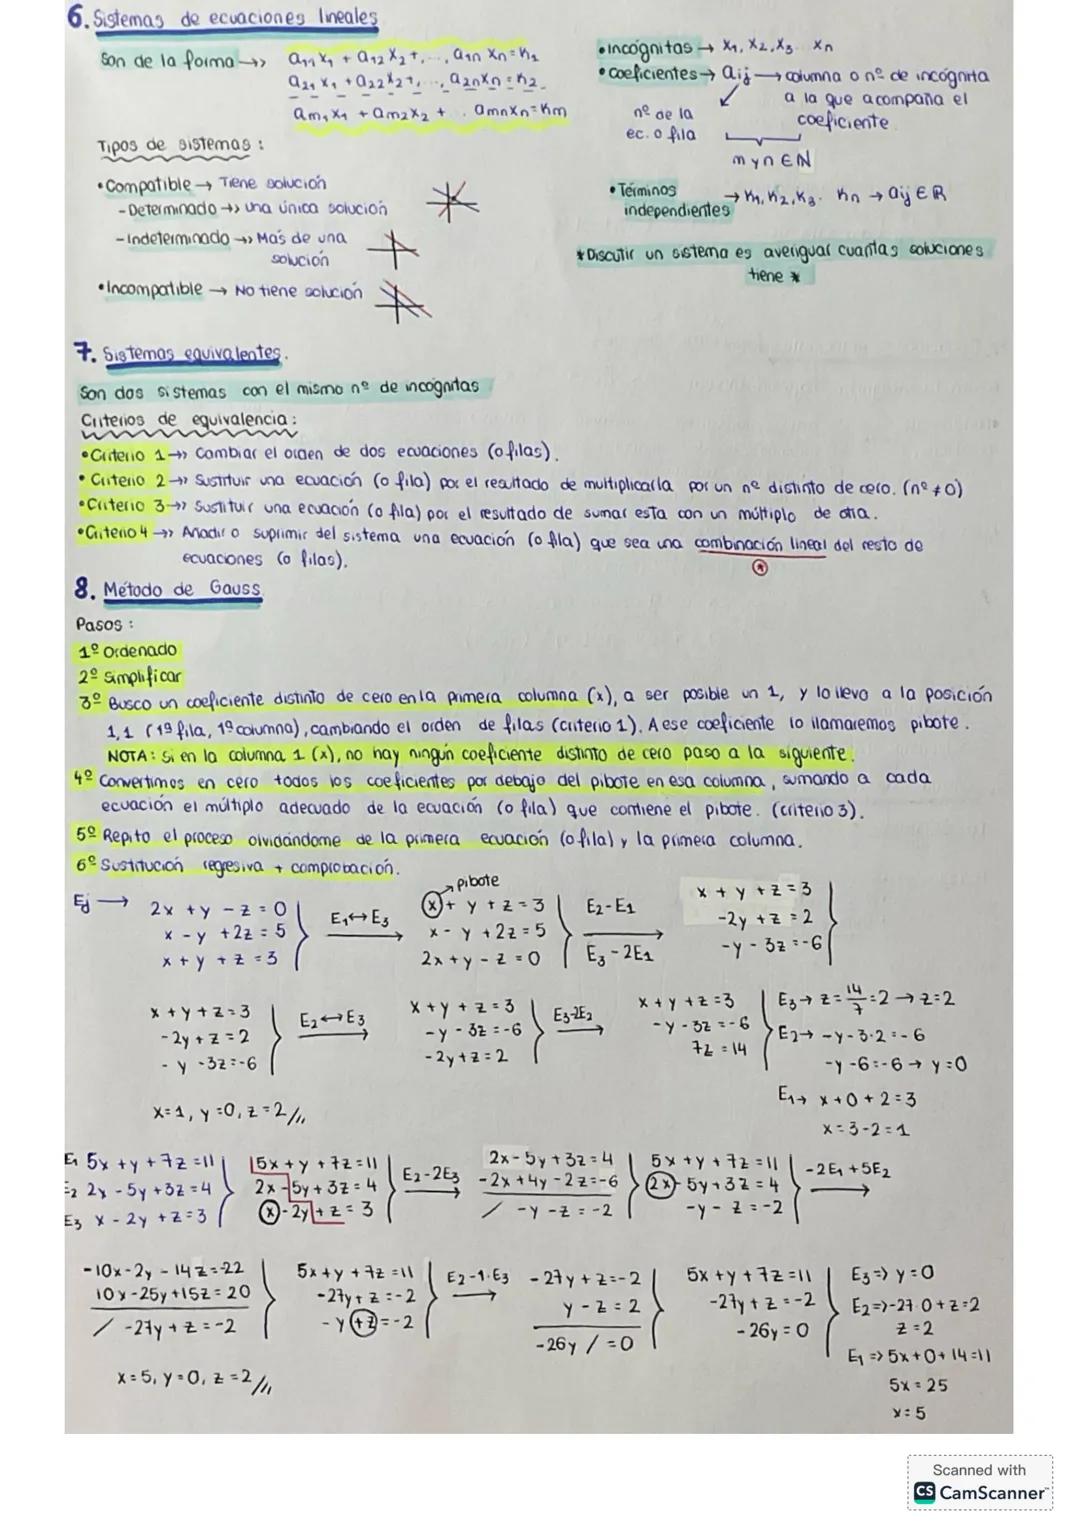 6. Sistemas de ecuaciones lineales
Son de la forma →» a11 x1 + a12 x2 +, ..., a1n xn = k1
a21 x1 + a22 x2 +, ..., a2n xn = k2
am1 x1 + am2 x2 + .. amn xn = km
• incógnitas → x1, x2, x3 .. xn
• coeficientes → aij → columna o nº de incógnita
a la que acompaña el
coeficiente
nº de la
ec. o fila
m y n ∈ N
• Términos
independientes → k1, k2, k3. kn → aij ∈ R
* Discutir un sistema es averiguar cuantas soluciones
tiene *
Tipos de sistemas :
• Compatible → Tiene solución
- Determinado →» una única solución
- Indeterminado →» Más de una
solución
• Incompatible → No tiene solución
7. Sistemas equivalentes.
Son dos sistemas con el mismo nº de incógnitas
Criterios de equivalencia :
• Criterio 1 →» Cambiar el orden de dos ecuaciones (o filas).
• Criterio 2 →» Sustituir una ecuación (o fila) por el resultado de multiplicarla por un nº distinto de cero. (nº ≠ 0)
• Criterio 3 →» Sustituir una ecuación (o fila) por el resultado de sumar esta con un múltiplo de otra.
• Criterio 4 →» Añadir o suprimir del sistema una ecuación (o fila) que sea una combinación lineal del resto de
ecuaciones (o filas).
*
8. Método de Gauss
Pasos :
1º Ordenado
2º Simplificar
3º Busco un coeficiente distinto de cero en la primera columna (x), a ser posible un 1, y lo llevo a la posición
1,1 (1ª fila, 1ª columna), cambiando el orden de filas (criterio 1). A ese coeficiente lo llamaremos pibote.
NOTA: Si en la columna 1 (x), no hay ningún coeficiente distinto de cero paso a la siguiente.
4º Convertimos en cero todos los coeficientes por debajo del pibote en esa columna, sumando a cada
ecuación el múltiplo adecuado de la ecuación (o fila) que contiene el pibote. (criterio 3).
5º Repito el proceso olvidándome de la primera ecuación (o fila) y la primera columna.
6º Sustitución regresiva + comprobación.
Ej →
2x + y - z = 0
x - y + 2z = 5
x + y + z = 3
E1 ↔ E3
pibote
x + y + z = 3
x - y + 2z = 5
2x + y - z = 0
E2 - E1
E3 - 2E1
x + y + z = 3
-2y + z = 2
-y - 3z = -6
x + y + z = 3
-2y + z = 2
- y - 3z = -6
E2 ↔ E3
x + y + z = 3
-y - 3z = -6
-2y + z = 2
E3 - 2E2
x + y + z = 3
-y - 3z = -6
7z = 14
E3 → z = 14/7 = 2 → z = 2
E2 → -y - 3·2 = -6
-y - 6 = -6 → y = 0
E1 → x + 0 + 2 = 3
x = 3 - 2 = 1
x = 1, y = 0, z = 2 //,
E1 5x + y + 7z = 11
E2 2x - 5y + 3z = 4
E3 x - 2y + z = 3
5x + y + 7z = 11
2x - 5y + 3z = 4
x - 2y + z = 3
E2 - 2E3
2x - 5y + 3z = 4
-2x + 4y - 2z = -6
/ -y - z = -2
5x + y + 7z = 11
2x - 5y + 3z = 4
-y - z = -2
-2E1 + 5E2
-10x - 2y - 14z = -22
10x - 25y + 15z = 20
/ -27y + z = -2
5x + y + 7z = 11
-27y + z = -2
- y + z = -2
E2 - 1·E3
-27y + z = -2
y - z = 2
-26y / = 0
5x + y + 7z = 11
-27y + z = -2
-26y = 0
E3 => y = 0
E2 => -27·0 + z = 2
z = 2
E1 => 5x + 0 + 14 = 11
5x = 25
x = 5
x = 5, y = 0, z = 2 //,
Scanned with
CS CamScanner